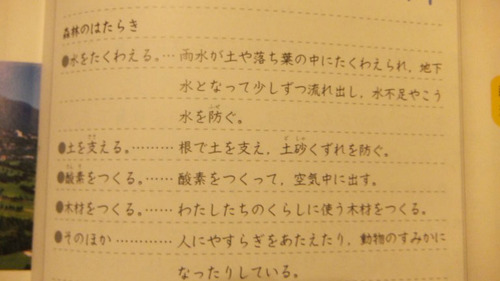 森林のはたらき
●水をたくわえる。… 雨水が土や落ち葉の中にたくわえられ，地下
水となって少しずつ流れ出し，水不足やこう
水を防ぐ。
●土を支える。……… 根で土を支え，土砂くずれを防ぐ。
●酸素をつくる。…… 酸素をつくって，空気中に出す。
●木材をつくる。…… わたしたちのくらしに使う木材をつくる。
●そのほか ………… 人にやすらぎをあたえたり，動物のすみかに
なったりしている。